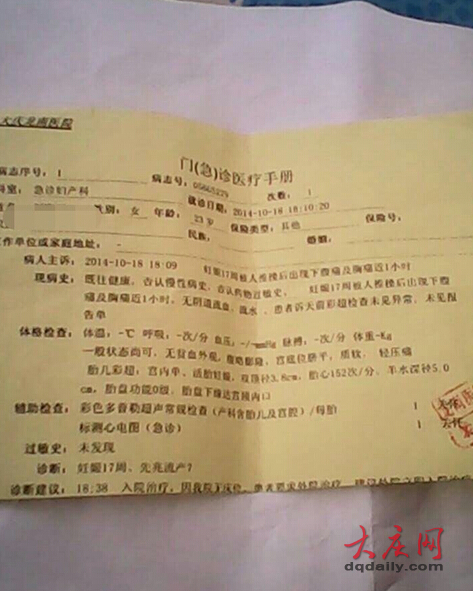 大庆龙南医院
门(急)诊医疗手册
病志序号： 1 病志号：05665229 次数： 1
科室：急诊妇产科 就诊日期：2014-10-18 18:10:20
性别：女 年龄： 23岁 保险类型：其他 保险号：
民族： 婚姻：
工作单位或家庭地址： -
病人主诉：2014-10-18 18:09 妊娠17周被人推搡后出现下腹痛及胸痛近1小时
现病史： 既往健康，否认慢性病史、否认药物过敏史， 妊娠17周被人推搡后出现下腹
痛及胸痛近1小时，无阴道流血、流水，患者诉天前彩超检查未见异常，未见报
告单
体格检查： 体温：-℃ 呼吸：-次/分 血压：-/-mmHg 脉搏：-次/分 体重-Kg
一般状态尚可，无贫血外观，腹略膨隆，宫底位脐平，质软， 轻压痛
胎儿彩超：宫内单、活胎妊娠，双顶径3.8cm，胎心152次/分，羊水深径5.0
cm，胎盘功能0级，胎盘下缘达宫颈内口
辅助检查： 彩色多普勒超声常规检查(产科含胎儿及宫腔)/每胎 1
标测心电图(急诊) 1
过敏史： 未发现
诊断： 妊娠17周、先兆流产?
诊断建议： 18:38 入院治疗，因我院无床位，患者要求外院治疗，建议外院立即入院治疗
大庆网
dqdaily.com